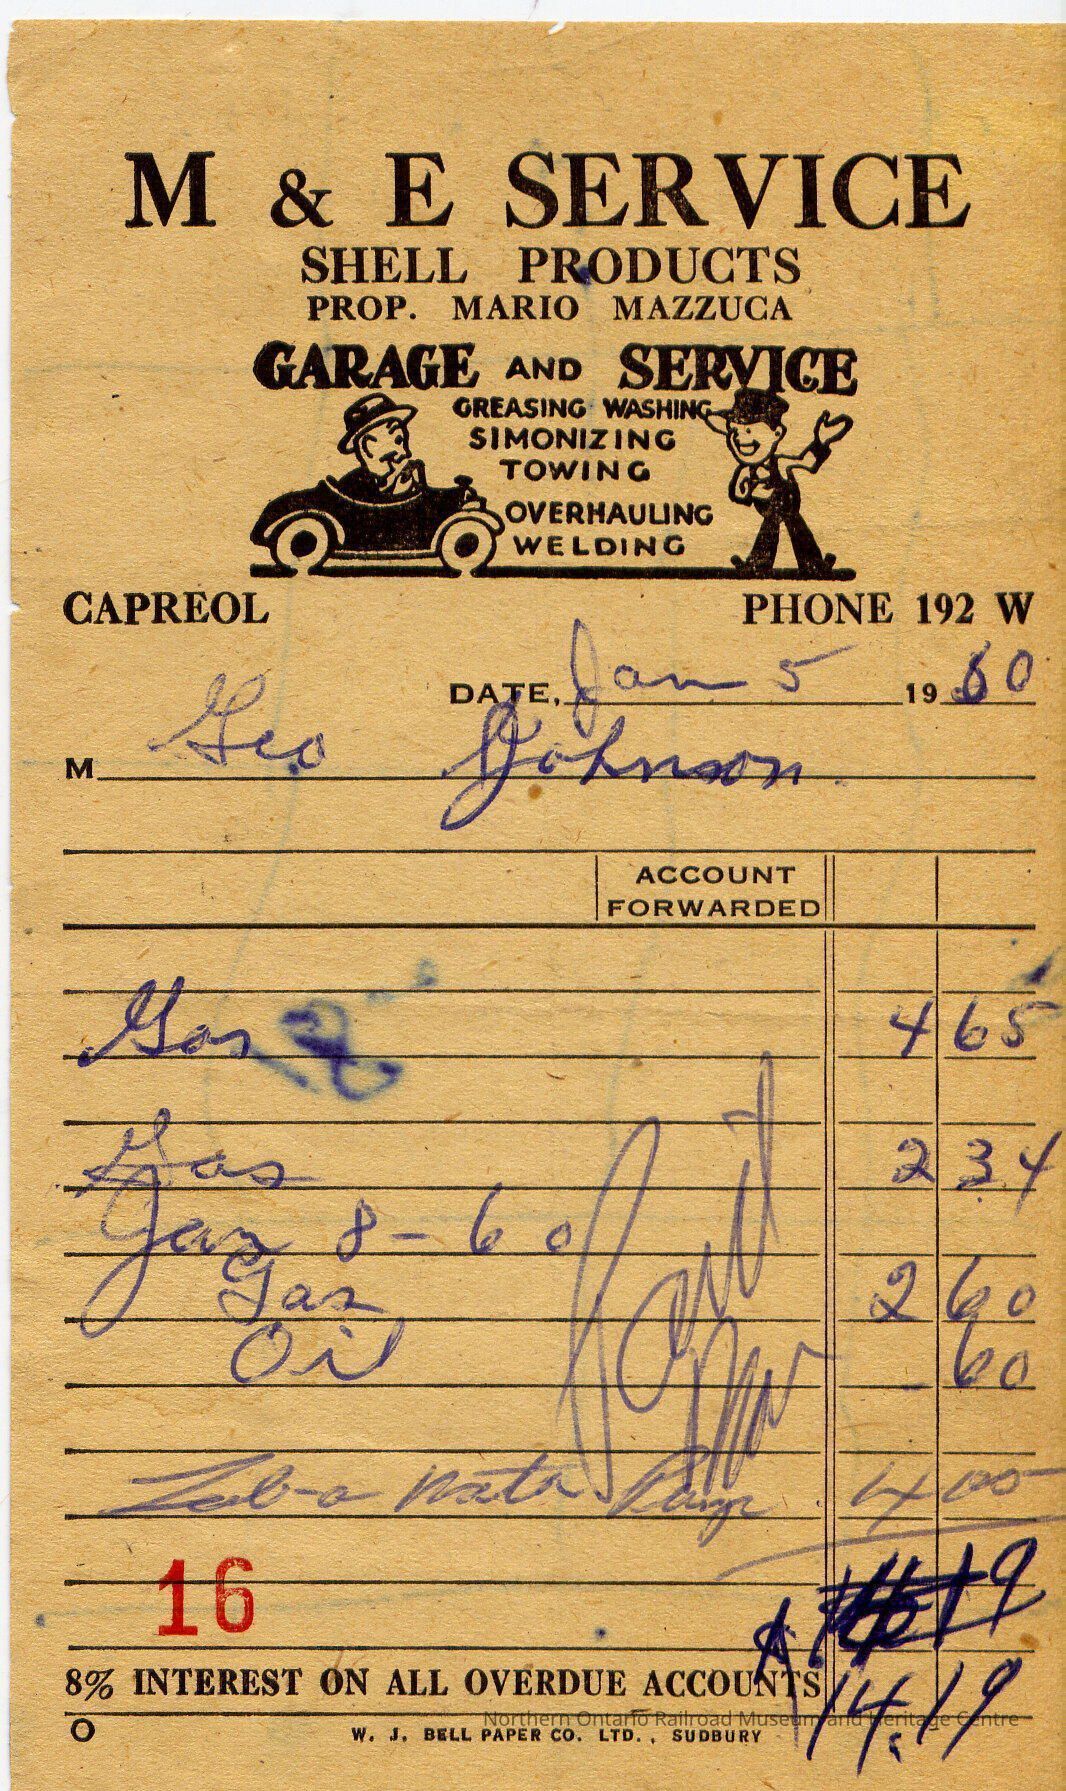 M & E SERVICE
SHELL PRODUCTS
PROP. MARIO MAZZUCA
GARAGE AND SERVICE
GREASING WASHING
SIMONIZING
TOWING
OVERHAULING
WELDING
CAPREOL PHONE 192 W
DATE, Jan 5 19 60
M Geo Johnson
ACCOUNT
FORWARDED
Gas 4 65
Gas 2 34
Jan 8-60
Gas 2 60
Oil 60
Paid
Water Pump 4 00
16
14.19
8% INTEREST ON ALL OVERDUE ACCOUNTS
Northern Ontario Railroad Museum and Heritage Centre
W. J. BELL PAPER CO. LTD., SUDBURY